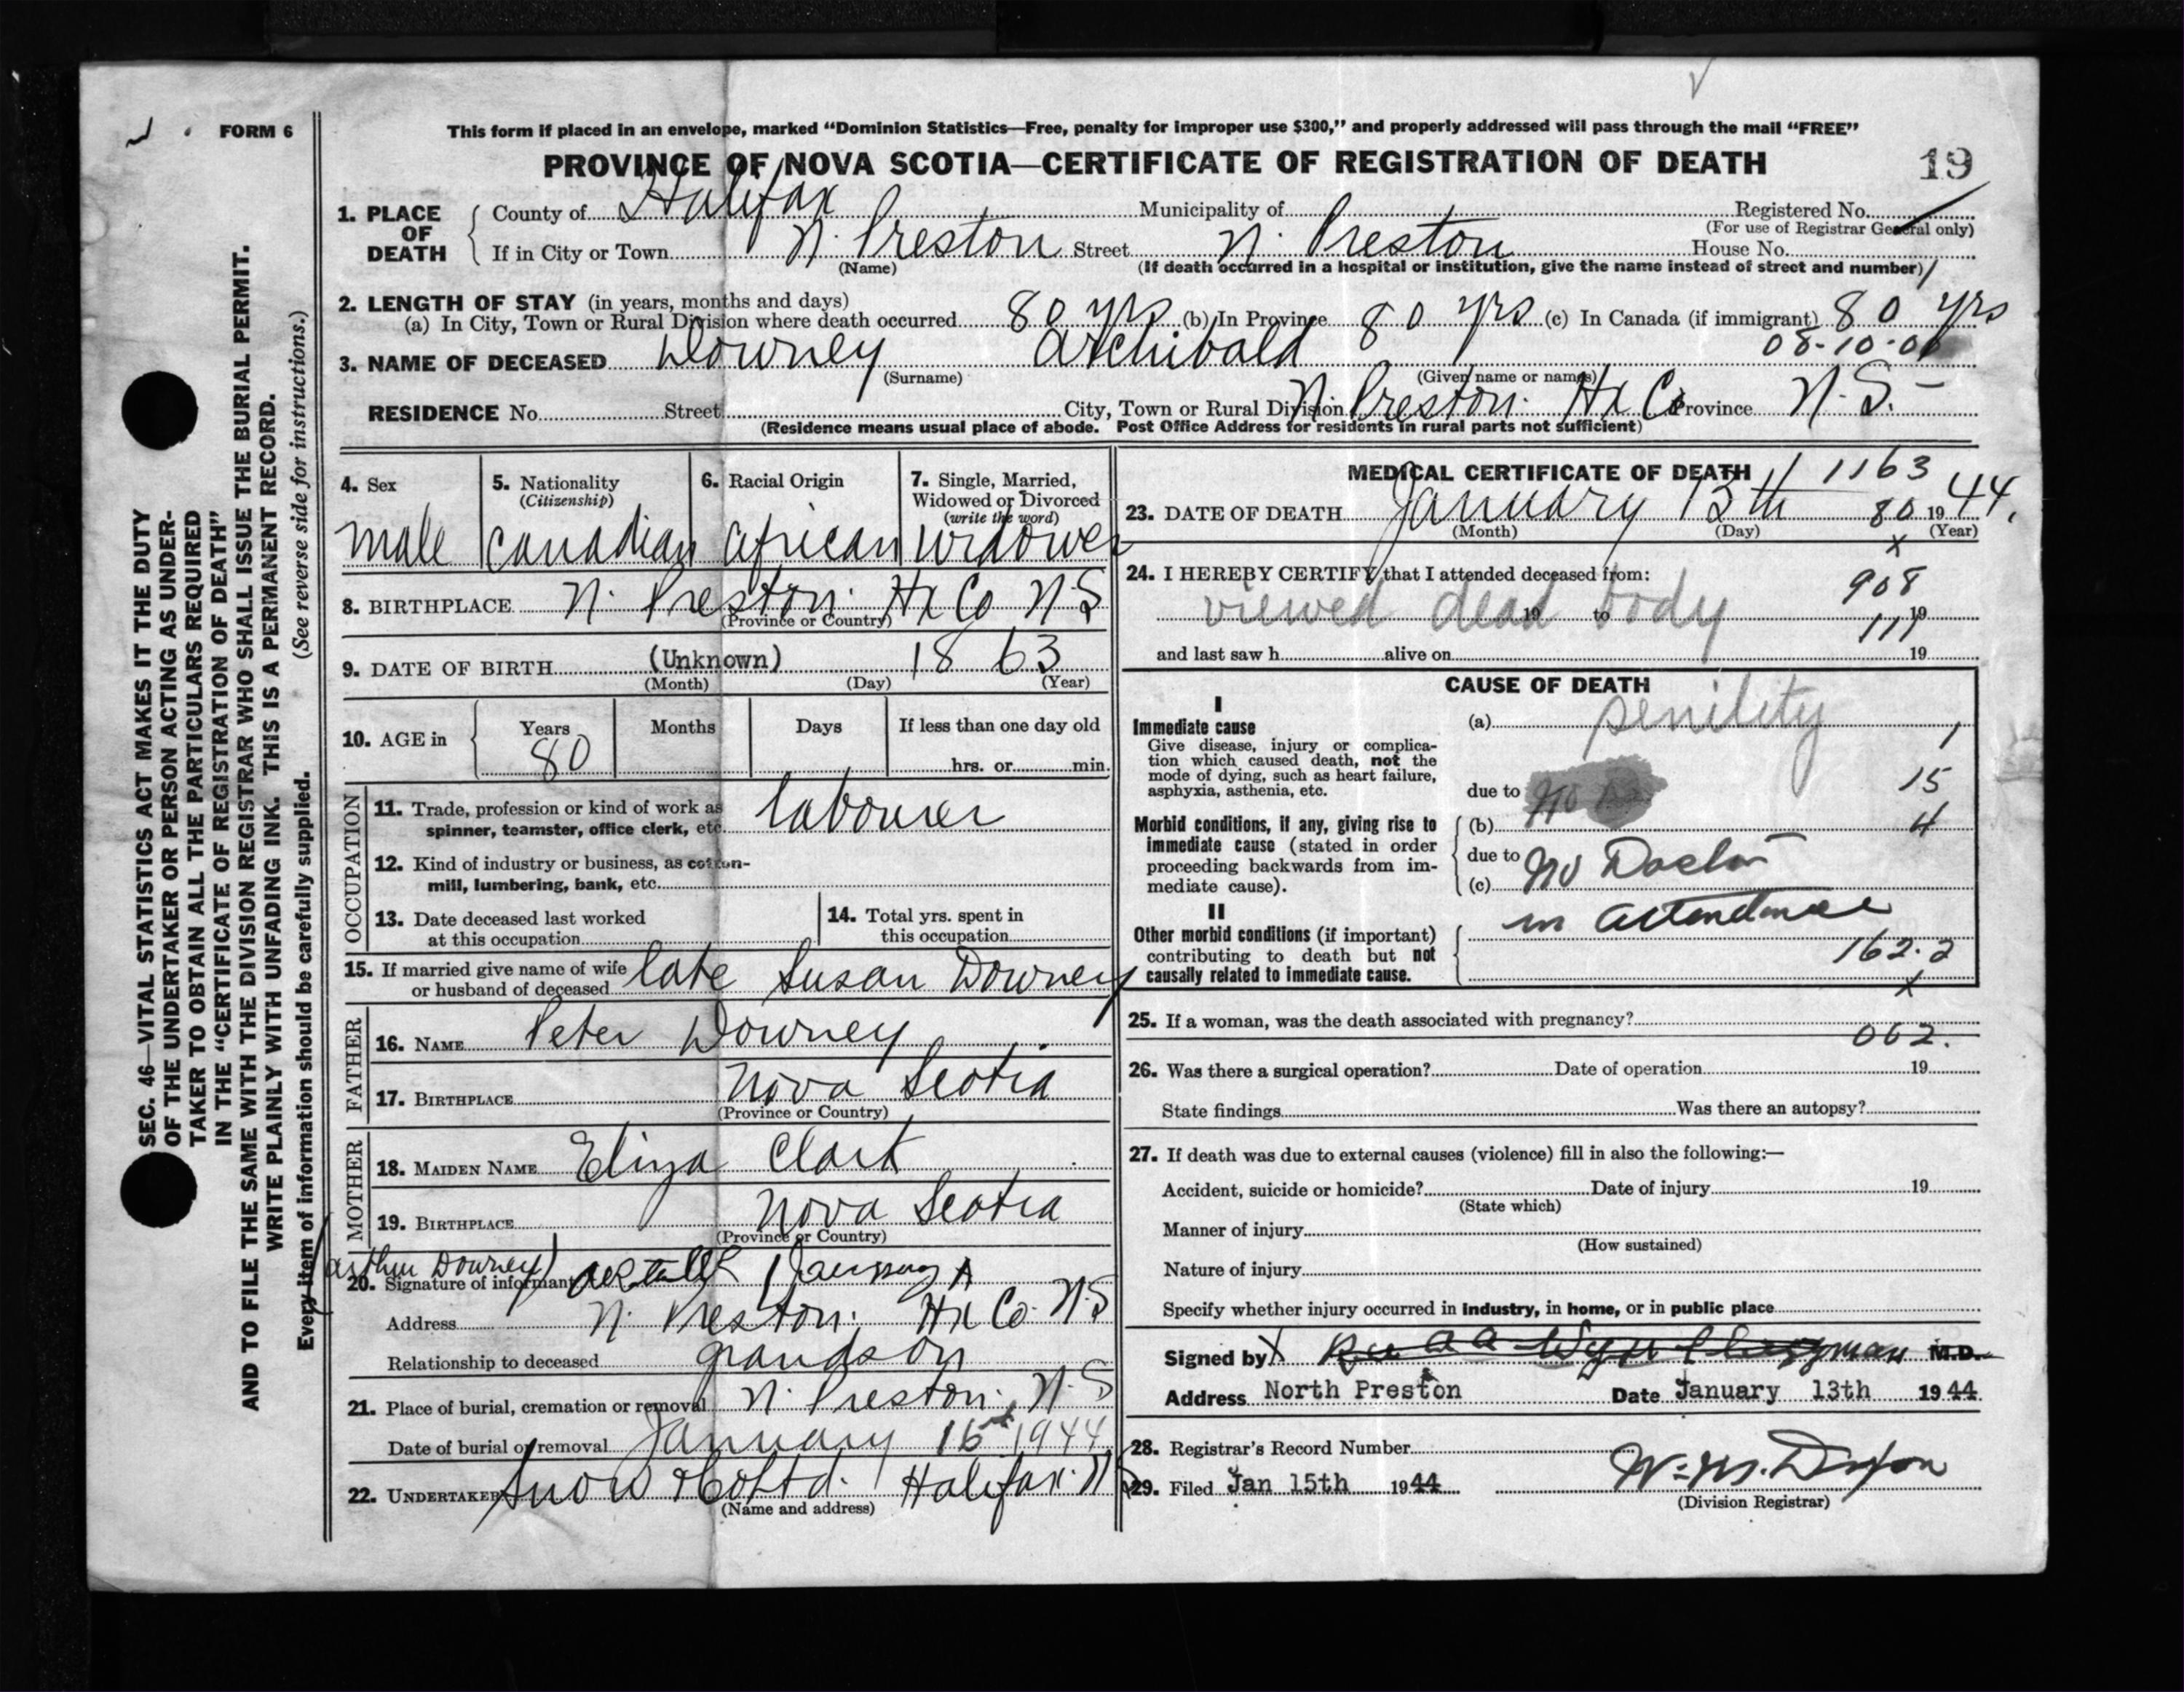 FORM 6
This form if placed in an envelope, marked "Dominion Statistics—Free, penalty for improper use $300," and properly addressed will pass through the mail "FREE"
PROVINCE OF NOVA SCOTIA—CERTIFICATE OF REGISTRATION OF DEATH
19
1. PLACE OF DEATH
County of Halifax Municipality of Registered No.
(For use of Registrar General only)
If in City or Town N. Preston Street N. Preston House No.
(Name) (If death occurred in a hospital or institution, give the name instead of street and number)
2. LENGTH OF STAY (in years, months and days)
(a) In City, Town or Rural Division where death occurred 80 yrs (b) In Province 80 yrs (c) In Canada (if immigrant) 80 yrs
08-10-0
3. NAME OF DECEASED Downey Archibald
(Surname) (Given name or names)
RESIDENCE No. Street City, Town or Rural Division N Preston. Hx Co Province N.S.
(Residence means usual place of abode. Post Office Address for residents in rural parts not sufficient)
4. Sex
male
5. Nationality
(Citizenship)
Canadian
6. Racial Origin
African
7. Single, Married,
Widowed or Divorced
(write the word)
widower
8. BIRTHPLACE N. Preston. Hx Co N.S
(Province or Country)
9. DATE OF BIRTH (Unknown) 1863
(Month) (Day) (Year)
10. AGE in
Years Months Days If less than one day old
80 hrs. or min.
OCCUPATION
11. Trade, profession or kind of work as
spinner, teamster, office clerk, etc. labourer
12. Kind of industry or business, as cotton-
mill, lumbering, bank, etc.
13. Date deceased last worked
at this occupation
14. Total yrs. spent in
this occupation
15. If married give name of wife
or husband of deceased late Susan Downey
FATHER
16. NAME Peter Downey
17. BIRTHPLACE Nova Scotia
(Province or Country)
MOTHER
18. MAIDEN NAME Eliza Clark
19. BIRTHPLACE Nova Scotia
(Province or Country)
(Arthur Downey)
20. Signature of informant
Address N. Preston. Hx Co. N.S
Relationship to deceased grandson
21. Place of burial, cremation or removal N. Preston. N.S
Date of burial or removal January 1944
22. UNDERTAKER Snow & Co Ltd. Halifax. N.S
(Name and address)
MEDICAL CERTIFICATE OF DEATH
1163
23. DATE OF DEATH January 13th 80 1944.
(Month) (Day) (Year)
x
24. I HEREBY CERTIFY that I attended deceased from:
908
viewed dead body
19 to 19
111
and last saw h alive on 19
CAUSE OF DEATH
I
Immediate cause
Give disease, injury or complica-
tion which caused death, not the
mode of dying, such as heart failure,
asphyxia, asthenia, etc.
(a) senility
1
due to
15
Morbid conditions, if any, giving rise to
immediate cause (stated in order
proceeding backwards from im-
mediate cause).
(b)
4
due to
(c) No Doctor
II
in attendance
Other morbid conditions (if important)
contributing to death but not
causally related to immediate cause.
162.2
x
25. If a woman, was the death associated with pregnancy?
062.
26. Was there a surgical operation? Date of operation 19
State findings Was there an autopsy?
27. If death was due to external causes (violence) fill in also the following:—
Accident, suicide or homicide? Date of injury 19
(State which)
Manner of injury
(How sustained)
Nature of injury
Specify whether injury occurred in industry, in home, or in public place
Signed by X Clergyman M.D.
Address North Preston Date January 13th 1944
28. Registrar's Record Number
29. Filed Jan 15th 1944
(Division Registrar)
SEC. 46—VITAL STATISTICS ACT MAKES IT THE DUTY
OF THE UNDERTAKER OR PERSON ACTING AS UNDER-
TAKER TO OBTAIN ALL THE PARTICULARS REQUIRED
IN THE "CERTIFICATE OF REGISTRATION OF DEATH"
AND TO FILE THE SAME WITH THE DIVISION REGISTRAR WHO SHALL ISSUE THE BURIAL PERMIT.
WRITE PLAINLY WITH UNFADING INK. THIS IS A PERMANENT RECORD.
Every item of information should be carefully supplied. (See reverse side for instructions.)